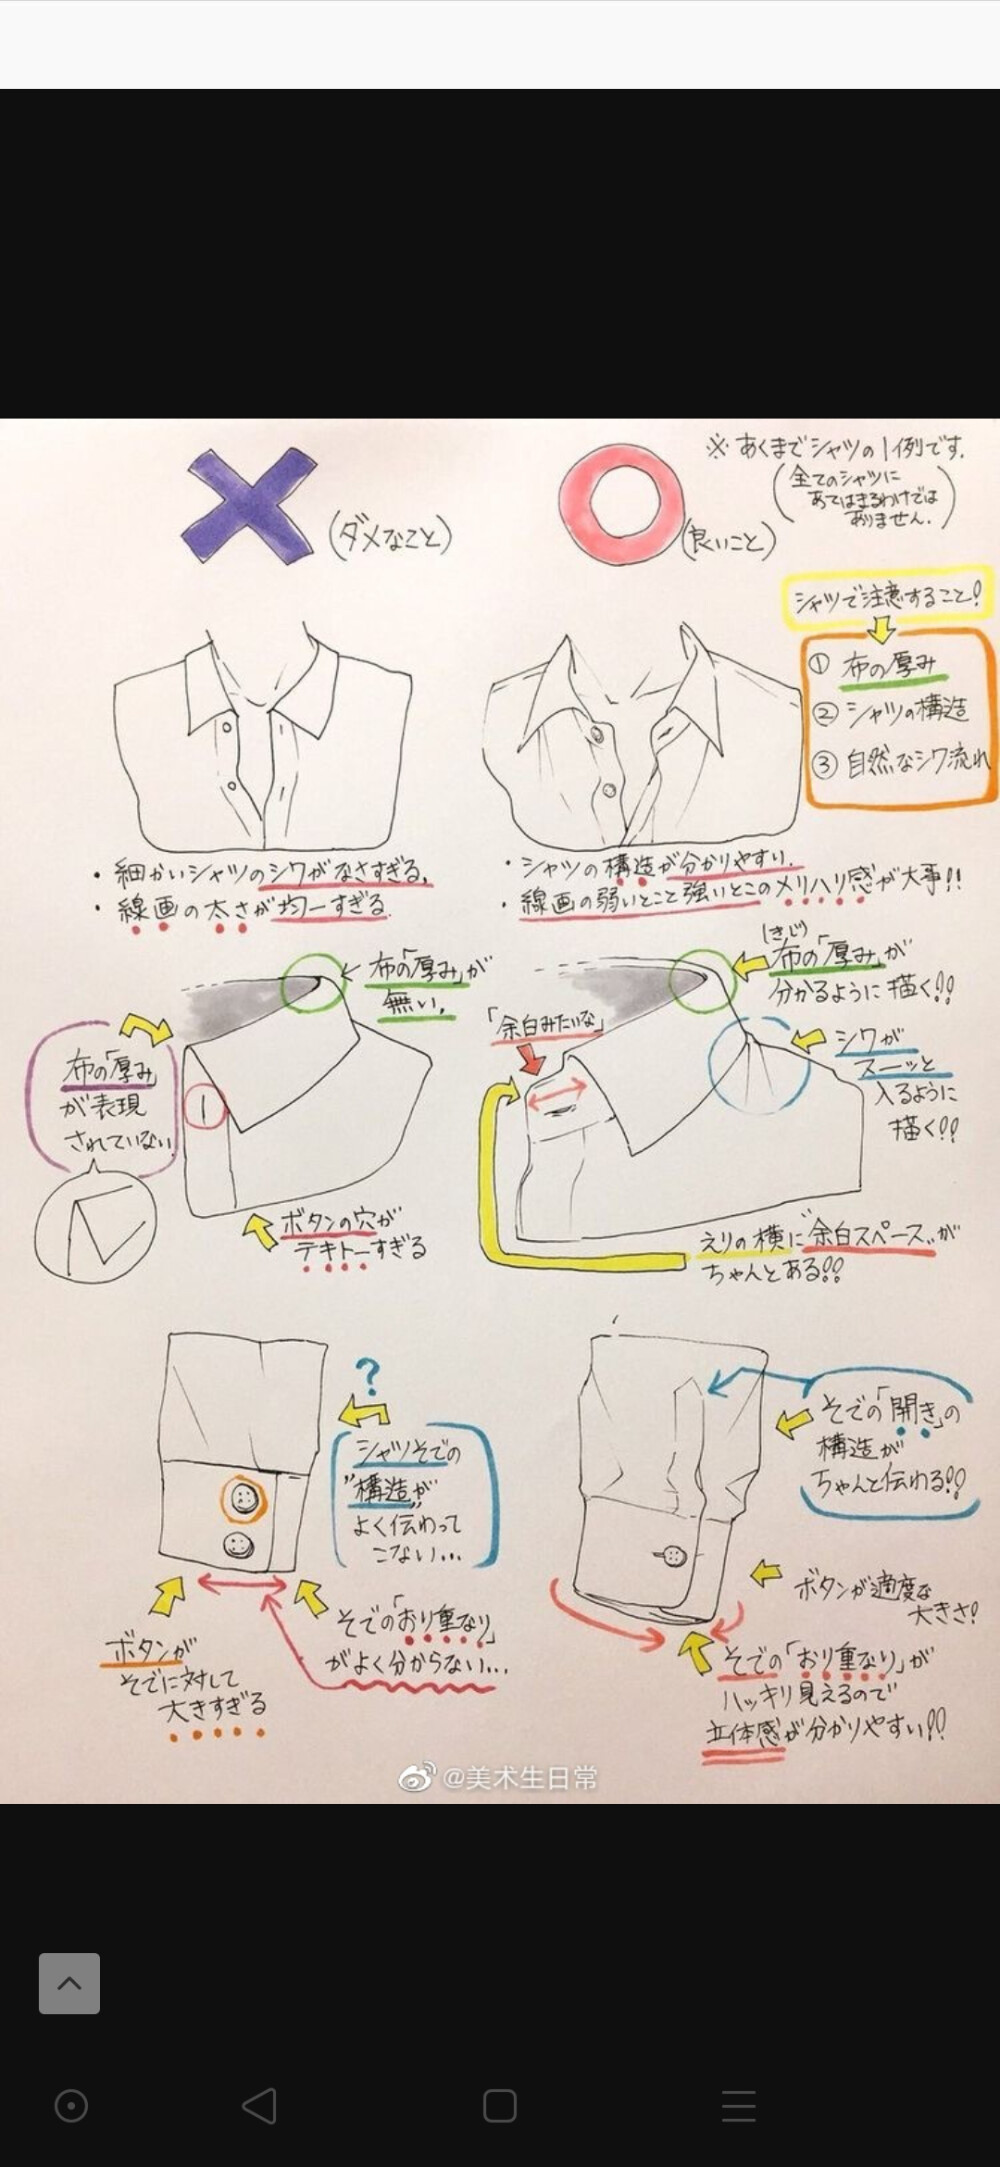 ※あくまでシャツの1例です.
(全てのシャツに
あてはまるわけでは
ありません.)
(ダメなこと)
(良いこと)
シャツで注意すること!
① 布の厚み
② シャツの構造
③ 自然なシワ流れ
・細かいシャツのシワがなさすぎる.
・線画の太さが均一すぎる
・シャツの構造が分かりやすい.
・線画の弱いとこと強いとこのメリハリ感が大事!!
布の「厚み」が
無い.
布の「厚み」
が表現
されていない
ボタンの穴が
テキトーすぎる
(きじ)
布の「厚み」が
分かるように描く!!
「余白みたいな」
シワが
スーッと
入るように
描く!!
えりの横に"余白スペース"が
ちゃんとある!!
?
シャツそでの
"構造"が
よく伝わって
こない...
ボタンが
そでに対して
大きすぎる
そでの「おり重なり」
がよく分からない...
そでの「開き」の
構造が
ちゃんと伝わる!!
ボタンが適度な
大きさ!
そでの「おり重なり」が
ハッキリ見えるので
立体感が分かりやすい!!
@美术生日常